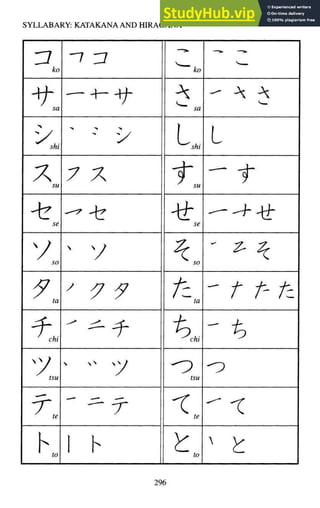 StudyHub.vip
Experienced writers
On-time delivery
Plagiarism free
SYLLABARY: KATAKANA AND HIRAGANA
コ ko フ コ こ ko ˉ こ
サ sa 一 十 サ さ sa ˊ さ さ
シ shi ˋ : シ し shi し
ス su フ ス す su 一 す
セ se フ セ せ se 一 ナ せ
ソ so ˋ ソ そ so ˊ そ そ
タ ta ノ ク タ た ta 一 ナ た た
チ chi ˊ ニ チ ち chi 一 ち
ツ tsu ˋ ˋˋ ツ つ tsu つ
テ te ˉ ニ テ て te ˊ て
ト to 丨 ト と to ヽ と
296